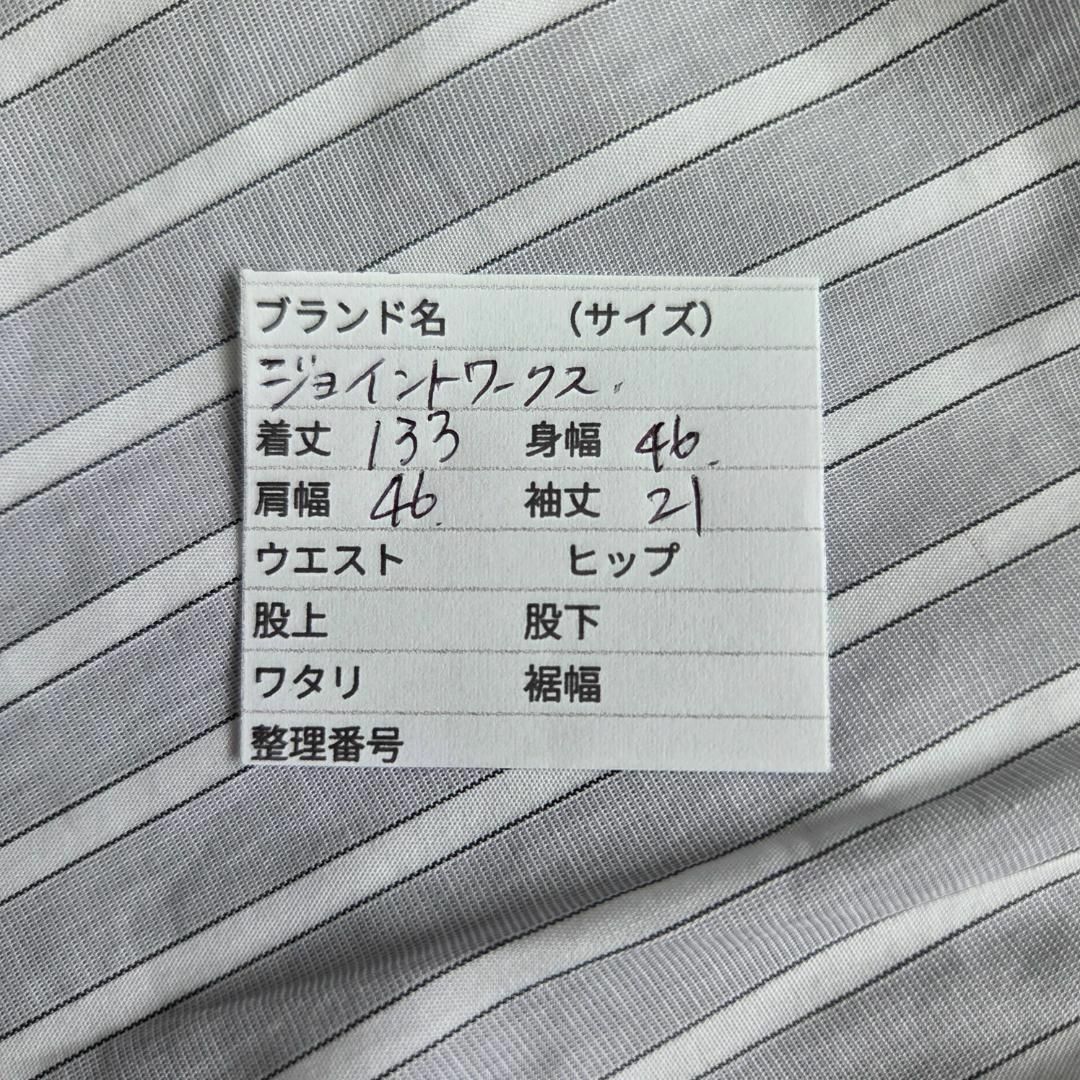 ブランド名 （サイズ）
ジョイントワークス
着丈 133 身幅 46.
肩幅 46. 袖丈 21
ウエスト ヒップ
股上 股下
ワタリ 裾幅
整理番号